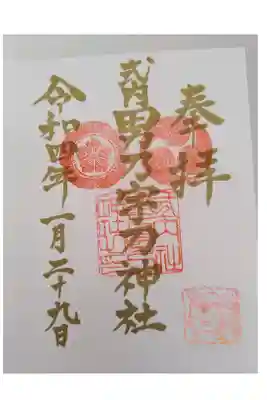 奉拝
式内 男乃宇刀神社
令和四年 一月二十九日